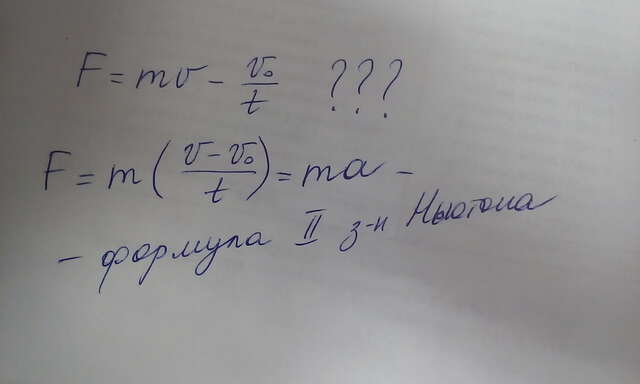 F = mv - v₀/t ???
F = m(v - v₀/t) = ma -
- формула II з-н Ньютона